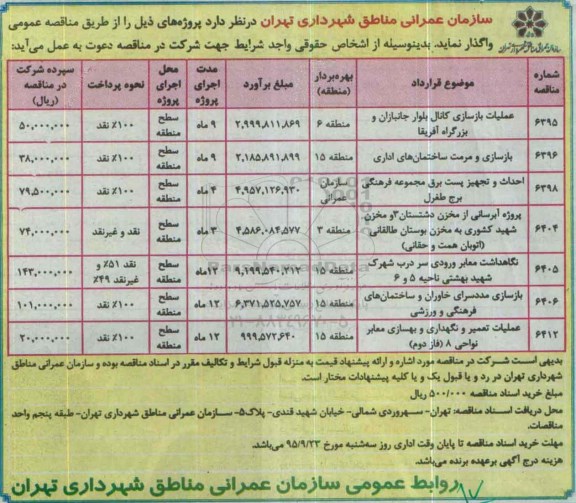 سازمان عمرانی مناطق شهرداری تهران درنظر دارد پروژه‌های ذیل را از طریق مناقصه عمومی
واگذار نماید. بدینوسیله از اشخاص حقوقی واجد شرایط جهت شرکت در مناقصه دعوت به عمل می‌آید:
شماره مناقصه | موضوع قرارداد | بهره‌بردار (منطقه) | مبلغ برآورد | مدت اجرای پروژه | محل اجرای پروژه | نحوه پرداخت | سپرده شرکت در مناقصه (ریال)
۶۳۹۵ | عملیات بازسازی کانال بلوار جانبازان و بزرگراه آفریقا | منطقه ۶ | ۲,۹۹۹,۸۱۱,۸۶۹ | ۹ ماه | سطح منطقه | ۱۰۰٪ نقد | ۵۰,۰۰۰,۰۰۰
۶۳۹۶ | بازسازی و مرمت ساختمان‌های اداری | منطقه ۱۵ | ۲,۱۸۵,۸۹۱,۸۹۹ | ۹ ماه | سطح منطقه | ۱۰۰٪ نقد | ۳۸,۰۰۰,۰۰۰
۶۳۹۸ | احداث و تجهیز پست برق مجموعه فرهنگی برج طغرل | سازمان عمرانی | ۴,۹۵۷,۱۲۶,۹۳۰ | ۴ ماه | سطح منطقه | ۱۰۰٪ نقد | ۷۹,۵۰۰,۰۰۰
۶۴۰۴ | پروژه آبرسانی از مخزن دشتستان۳و مخزن شهید کشوری به مخزن بوستان طالقانی (اتوبان همت و حقانی) | منطقه ۳ | ۴,۵۸۶,۰۸۴,۵۷۷ | ۳ ماه | سطح منطقه | نقد و غیرنقد | ۷۴,۰۰۰,۰۰۰
۶۴۰۵ | نگاهداشت معابر ورودی سر درب شهرک شهید بهشتی ناحیه ۵ و ۶ | منطقه ۱۵ | ۹,۱۹۹,۵۴۰,۷۱۲ | ۱۲ماه | سطح منطقه | نقد ۵۱٪ و غیرنقد ۴۹٪ | ۱۴۳,۰۰۰,۰۰۰
۶۴۰۶ | بازسازی مددسرای خاوران و ساختمان‌های فرهنگی و ورزشی | منطقه ۱۵ | ۶,۳۷۱,۵۲۵,۷۵۷ | ۱۲ ماه | سطح منطقه | ۱۰۰٪ نقد | ۱۰۱,۰۰۰,۰۰۰
۶۴۱۲ | عملیات تعمیر و نگهداری و بهسازی معابر نواحی ۸ (فاز دوم) | منطقه ۱۵ | ۹۹۹,۵۷۲,۶۴۰ | ۱۲ ماه | سطح منطقه | ۱۰۰٪ نقد | ۲۰,۰۰۰,۰۰۰
بدیهی است شرکت در مناقصه مورد اشاره و ارائه پیشنهاد قیمت به منزله قبول شرایط و تکالیف مقرر در اسناد مناقصه بوده و سازمان عمرانی مناطق
شهرداری تهران در رد و یا قبول یک و یا کلیه پیشنهادات مختار است.
مبلغ خرید اسناد مناقصه ۵۰۰/۰۰۰ ریال
محل دریافت اسناد مناقصه: تهران- سهروردی شمالی- خیابان شهید قندی- پلاک۵- سازمان عمرانی مناطق شهرداری تهران- طبقه پنجم واحد
مناقصات.
مهلت خرید اسناد مناقصه تا پایان وقت اداری روز سه‌شنبه مورخ ۹۵/۹/۲۳ می‌باشد.
هزینه درج آگهی برعهده برنده می‌باشد.
روابط عمومی سازمان عمرانی مناطق شهرداری تهران